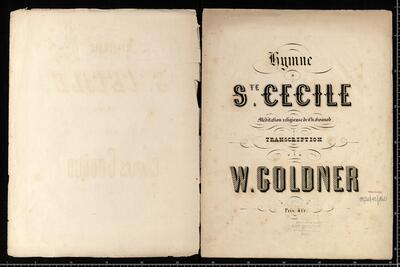 Hymne
à
STE. CECILE
Méditation religieuse de Ch. Gounod
TRANSCRIPTION
PAR
W. GOLDNER
Prix: 4 fr.